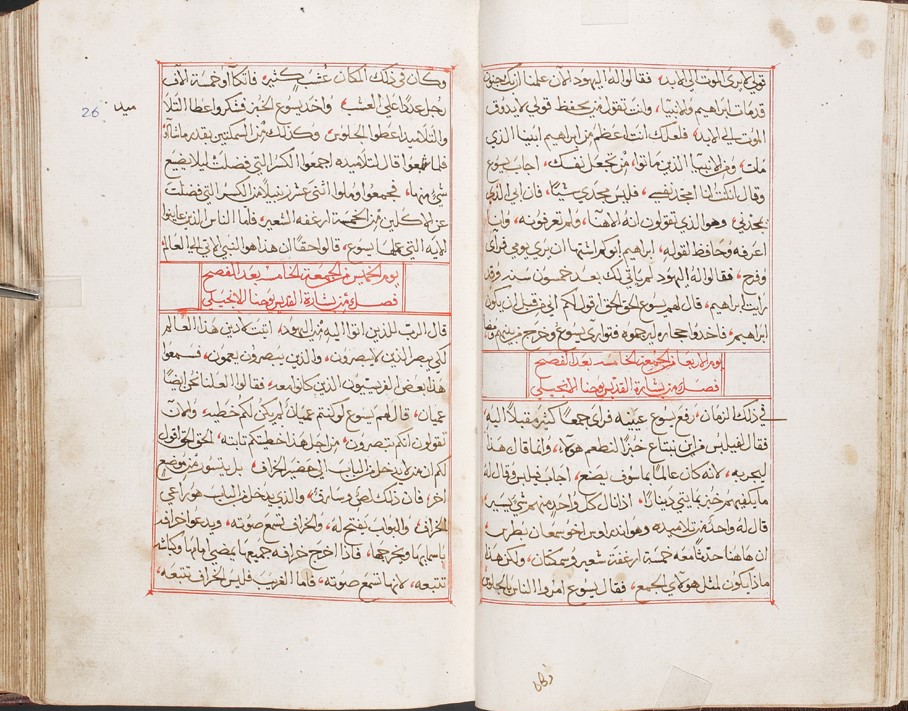 قولي لا يرى الموت الى الابد، فقالوا له اليهود الان علمنا انك مجنون
قد مات ابراهيم والانبيا، وانت تقول من يحفظ قولي لا يدوق
الموت الى الابد، فلعلك انت اعظم من ابراهيم ابينا الذي
مات، ومن الانبيا الذين ماتوا، من تجعل نفسك، اجاب يسوع
وقال ان كنت انا امجد نفسي، فليس مجدي شيًا، فان ابي الذي
يمجدني، وهو الذي تقولون انه الاهنا، ولم تعرفونه، وانا
اعرفه وحافظ لقوله، ابراهيم ابوكم اشتها ان يرى يومي فراى
وفرح، فقالوا له اليهود لم ياتي لك بعد خمسون سنه وقد
رايت ابراهيم، قال لهم يسوع الحق الحق اقول لكم انني قبل ان يكون
ابراهيم، فاخدوا حجاره ليرجموه فتوارى يسوع وخرج من بينهم ومضا
يوم الاربعا من الجمعه الخامسه بعد الفصح
فصل من بشارة القديس يوحنا الانجيلي
في ذلك الزمان، رفع يسوع عينيه فراى جمعًا كثير مقبلًا اليه
فقال لفيلبس من اين نبتاع خبزًا لنطعم هولاء، وانما قال هذا
ليجربه، لانه كان عالمًا بما سوف يصنع، اجاب فيلبس وقال له
ما يكفيهم خبز بمايتي دينارًا، اذا نال كل واحد منهم شي يسير
قال له واحد من تلاميذه وهو اندراوس اخو سمعان بطرس،
ان هاهنا حدثًا معه خمسة ارغفة شعير وسمكتان، ولكن هذا
ماذا يكون لمثل هولاي الجمع، فقال يسوع امروا الناس بالجلوس
وكان
وكان في ذلك المكان عشب كثير، فاتكاا نحو خمسة الاف
رجل عددًا على العشب، واخد يسوع الخبز فشكر واعطا التلا
والتلاميذ اعطوا الجلوس، وكذلك من السمكتين بقدر ما شاا
فلما شبعوا قال لتلاميذه اجمعوا الكسر التي فضلت ليلا يضيع
شي منها، فجمعوا وملوا اثنى عشر زنبيلا من الكسر التي فضلت
عن الاكلين من الخمسة ارغفه الشعير، فاما الناس الذين عاينوا
الايه التي عملها يسوع، قالوا حقًا ان هذا هو النبي الاتي الى العالم
يوم الخميس من الجمعة الخامسه بعد الفصح
فصل من بشارة القديس يوحنا الانجيلي
قال الرب للذين اتوا اليه من اليهود، اتيت لادين هذا العالم
لكي يبصر الذين لا يبصرون، والذين يبصرون يعمون، فسمعوا
هذا بعض الفريسيون الذين كانوا معه، فقالوا العلنا نحن ايضًا
عميان، قال لهم يسوع لو كنتم عميان لم يكن لكم خطيه، والان
تقولون انكم تبصرون، من اجل هذا خطيتكم ثابته، الحق الحق اقول
لكم ان من لا يدخل من الباب الى حضير الخراف، بل يتسور من موضع
اخر، فان ذلك لص وسارق، والذي يدخل من الباب هو راعي
الخراف، والبواب يفتح له، والخراف تسمع صوته، ويدعوا خرافه
باسمايها ويخرجها، فاذا اخرج خرافه جميعها يمضي امامها وكباشه
تتبعه، لانها تسمع صوته، فاما الغريب فليس الخراف تتبعه،
26